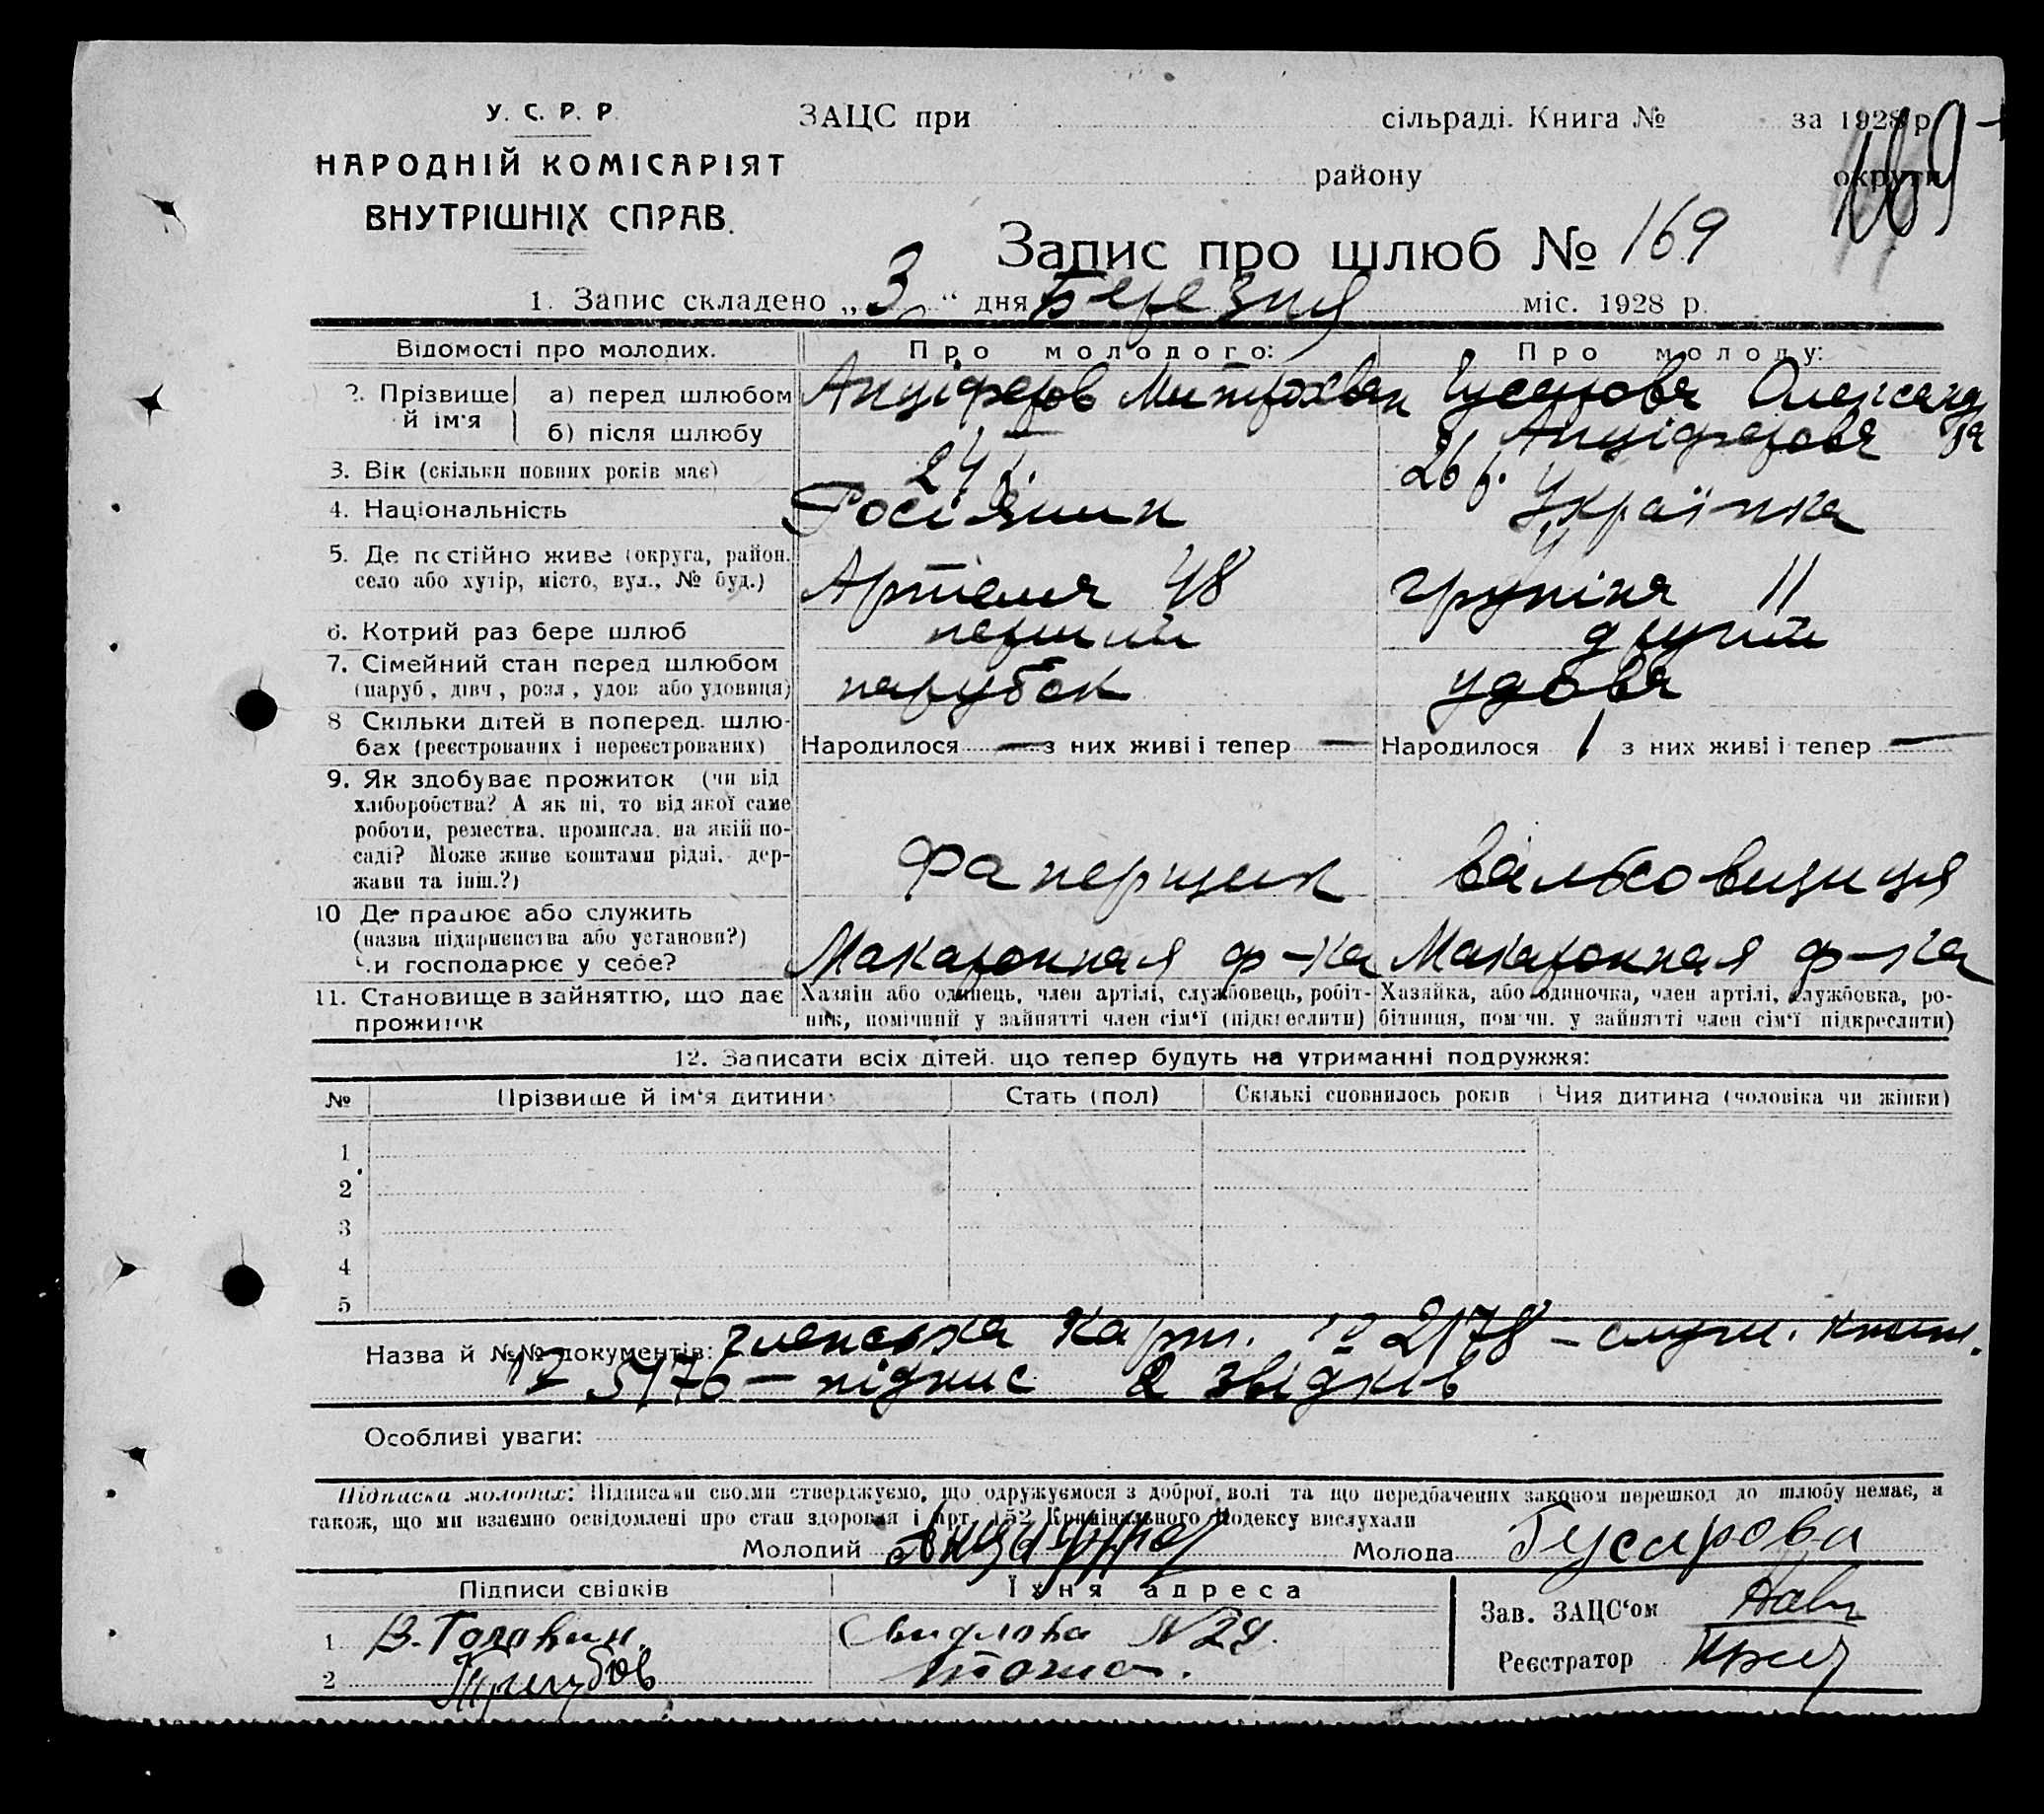 У. С. Р. Р.
НАРОДНІЙ КОМІСАРІЯТ
ВНУТРІШНІХ СПРАВ.
ЗАЦС при сільраді. Книга № за 1928 р.
району округи
169
Запис про шлюб № 169
1. Запис складено „3“ дня Березня міс. 1928 р.
Відомості про молодих. Про молодого: Про молоду:
2. Прізвище й ім'я а) перед шлюбом Анціферов Митрохван Гусарова Олександра
б) після шлюбу — Анціферова
3. Вік (скільки повних років має) 24 р. 26 р.
4. Національність Росіянин Українка
5. Де постійно живе (округа, район, село або хутір, місто, вул., № буд.) Артема 48 11
6. Котрий раз бере шлюб перший другий
7. Сімейний стан перед шлюбом (паруб., дівч., розл., удов. або удовиця) парубок удова
8. Скільки дітей в поперед. шлюбах (реєстрованих і нереєстрованих) Народилося — з них живі і тепер — Народилося 1 з них живі і тепер —
9. Як здобуває прожиток (чи від
хліборобства? А як ні, то від якої саме
роботи, ремества, промисла, на якій по-
саді? Може живе коштами рідні, дер-
жави та інш.?) Фанерщик вальсовщиця
10. Де працює або служить
(назва підприємства або установи?)
Чи господарює у себе? Макаронная ф-ка Макаронная ф-ка
11. Становище в зайняттю, що дає прожиток
Хазяїн або одинець, член артілі, службовець, робіт-
ник, помічний у зайнятті член сім'ї (підкреслити)
Хазяйка, або одиночка, член артілі, службовка, ро-
бітниця, помічн. у зайнятті член сім'ї (підкреслити)
12. Записати всіх дітей, що тепер будуть на утриманні подружжя:
№ Прізвище й ім'я дитини Стать (пол) Скількі сповнилось років Чия дитина (чоловіка чи жінки)
1
2
3
4
5
Назва й №№ документів: членська карт. № 2178 – служ. книж.
№ 5176 – підпис 2 звідків
Особливі уваги:
Підписка молодих: Підписами своїми стверджуємо, що одружуємося з доброї волі та що передбачених законом перешкод до шлюбу немає, а
також, що ми взаємно освідомлені про стан здоровя і арт. 152 Кримінального Кодексу вислухали
Молодий Молода Гусарова
Підписи свідків Їхня адреса
1 В. Головин. Свидлова №24.
2 тоже.
Зав. ЗАЦС'ом
Реєстратор